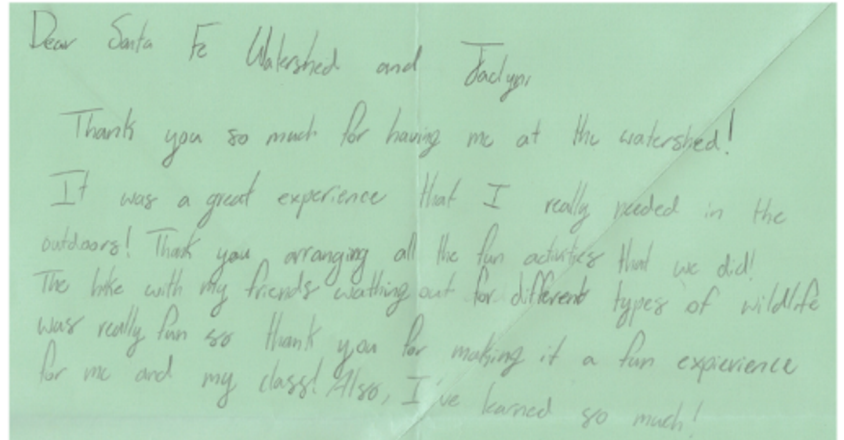 Dear Santa Fe Watershed and Jaclyn,
Thank you so much for having me at the watershed!
It was a great experience that I really needed in the
outdoors! Thank you arranging all the fun activities that we did!
The hike with my friends wathing out for different types of wildlife
was really fun so thank you for making it a fun expierience
for me and my class! Also, I've learned so much!